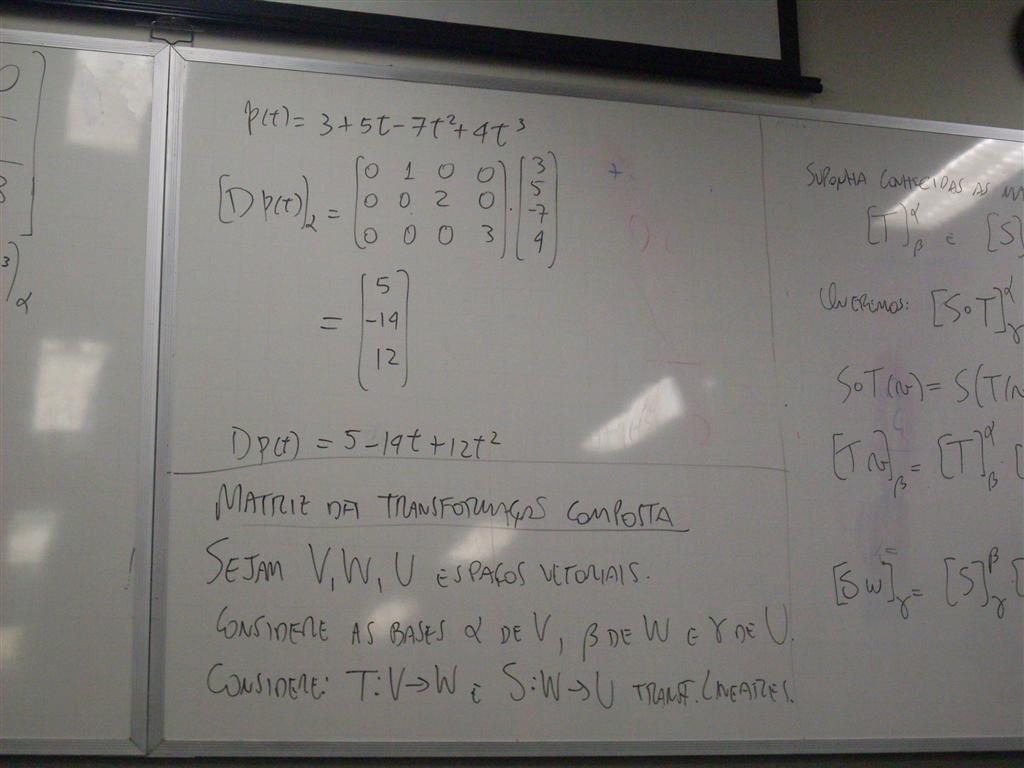 0
8
3)α
p(t) = 3 + 5t - 7t² + 4t³
[Dp(t)]α = [0 1 0 0; 0 0 2 0; 0 0 0 3] · [3; 5; -7; 4]
= [5; -14; 12]
Dp(t) = 5 - 14t + 12t²
MATRIZ DA TRANSFORMAÇÃO COMPOSTA
SEJAM V, W, U ESPAÇOS VETORIAIS.
CONSIDERE AS BASES α DE V, β DE W E γ DE U.
CONSIDERE: T: V → W E S: W → U TRANSF. LINEARES.
SUPONHA CONHECIDAS AS
[T]^α_β E [S]
QUEREMOS: [S∘T]^α_γ
S∘T(v) = S(T(v
[Tv]_β = [T]^α_β · [
[Sw]_γ = [S]^β_γ · [